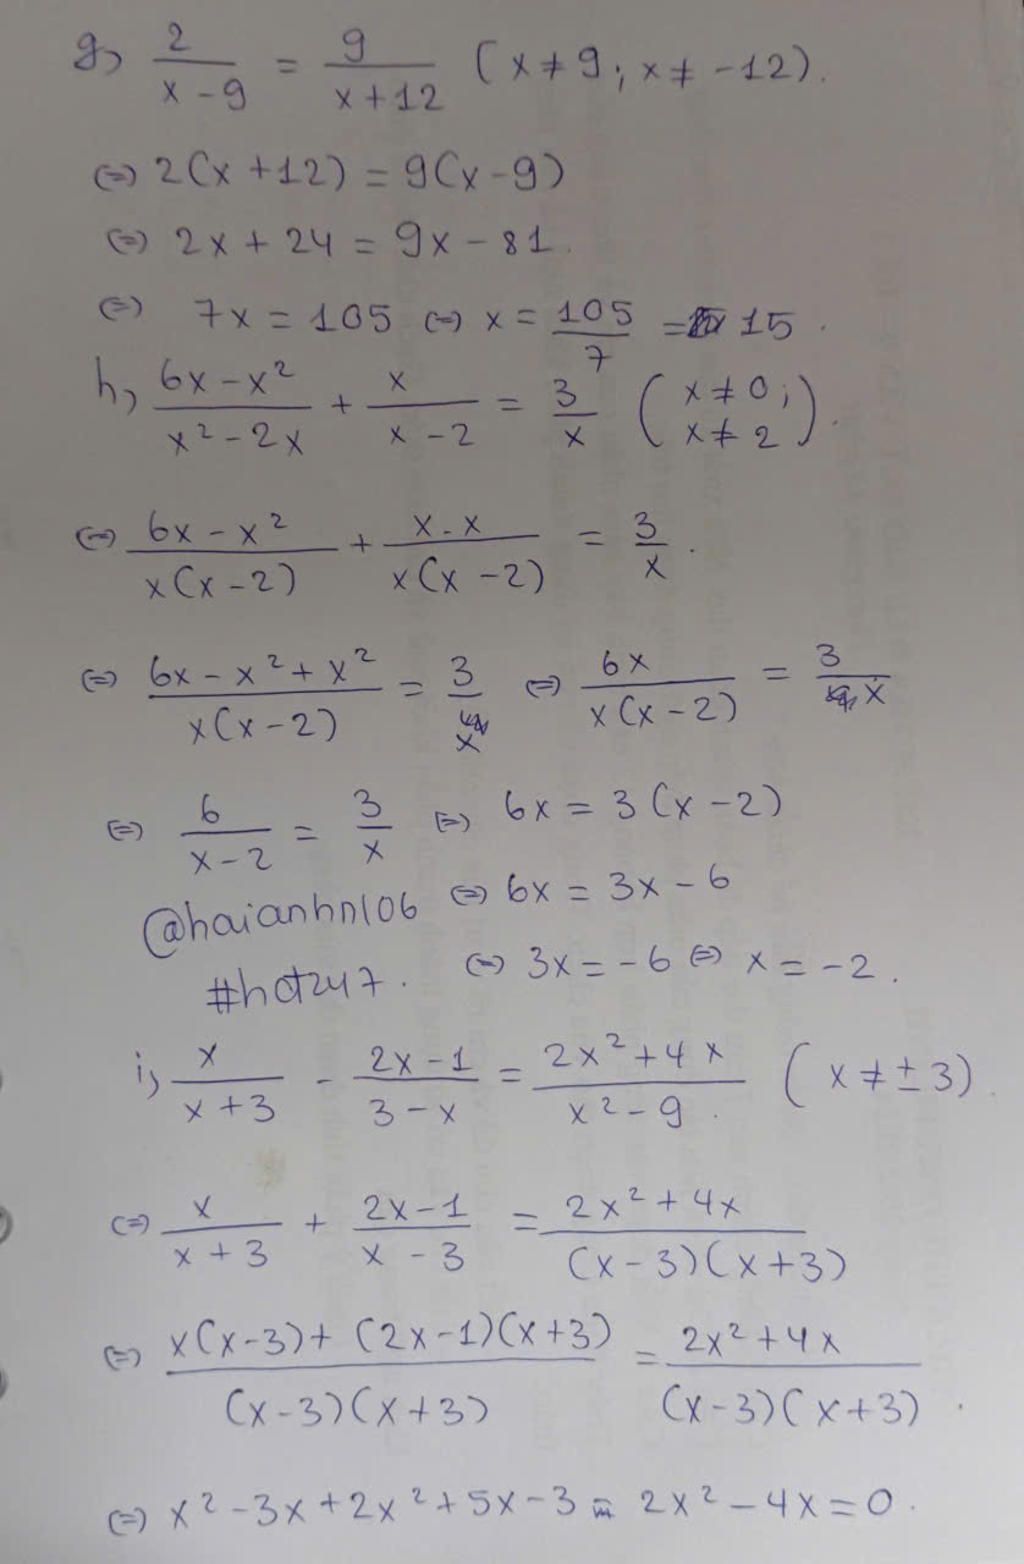 g) 2/(x-9) = 9/(x+12) (x≠9; x≠-12).
(=) 2(x+12) = 9(x-9)
(=) 2x + 24 = 9x - 81.
(=) 7x = 105 (=) x = 105/7 = 15.
h) (6x-x²)/(x²-2x) + x/(x-2) = 3/x (x≠0; x≠2).
(=) (6x-x²)/(x(x-2)) + (x.x)/(x(x-2)) = 3/x.
(=) (6x-x²+x²)/(x(x-2)) = 3/x (=) 6x/(x(x-2)) = 3/x
(=) 6/(x-2) = 3/x (=) 6x = 3(x-2)
@haianhn106 (=) 6x = 3x - 6
#hot247. (=) 3x = -6 (=) x = -2.
i) x/(x+3) - (2x-1)/(3-x) = (2x²+4x)/(x²-9). (x≠±3).
(=) x/(x+3) + (2x-1)/(x-3) = (2x²+4x)/((x-3)(x+3))
(=) (x(x-3)+(2x-1)(x+3))/((x-3)(x+3)) = (2x²+4x)/((x-3)(x+3)).
(=) x²-3x+2x²+5x-3 - 2x²-4x=0.